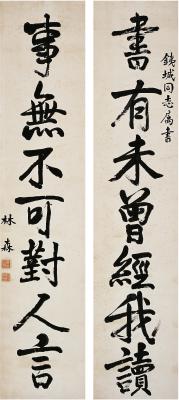 書有未曾經我讀
銕城同志屬書
事無不可對人言
林森